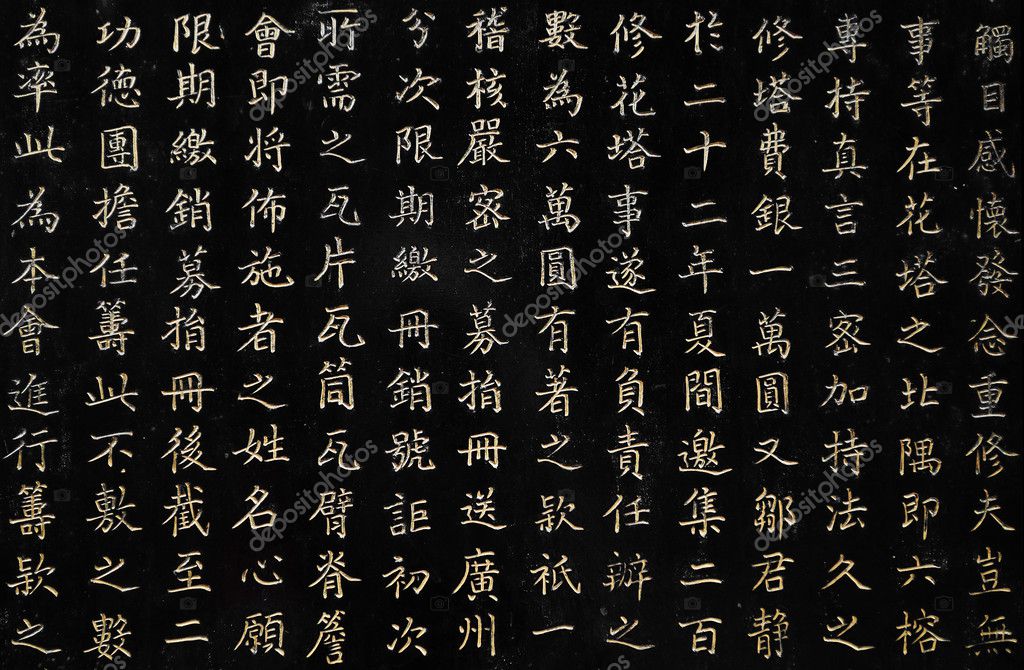 觸目感懷發念重修夫豈無
事等在花塔之北隅即六榕
專持真言三密加持法久之
修塔費銀一萬圓又鄒君静
於二十二年夏間邀集二百
修花塔事遂有負責任辦之
數為六萬圓有著之款祇一
稽核嚴密之募捐冊送廣州
分次限期繳冊銷號詎初次
所需之瓦片瓦筒瓦臂脊簷
會即將佈施者之姓名心願
限期繳銷募捐冊後截至二
功德團擔任籌此不敷之數
為率此為本會進行籌款之
depositphotos